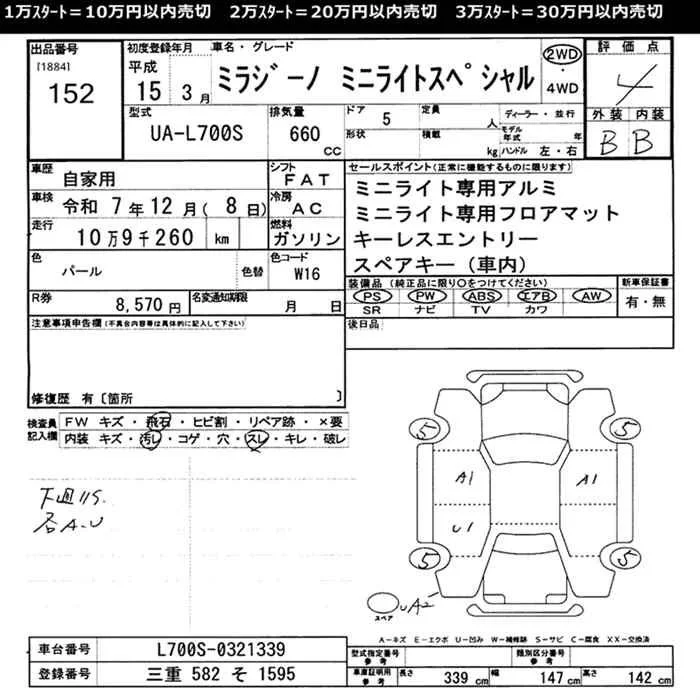 1万スタート＝10万円以内売切　2万スタート＝20万円以内売切　3万スタート＝30万円以内売切
出品番号 [1884] 152
初度登録年月 平成 15 3月
車名・グレード ミラジーノ ミニライトスペシャル
2WD・4WD
評価点 4
外装 内装 B B
型式 UA-L700S
排気量 660 CC
ドア 5 定員 人
形状 積載 kg
ディーラー・並行
モデル年式 年
ハンドル 左・右
車歴 自家用
シフト FAT
車検 令和 7年12月(8日)
冷房 AC
走行 10万9千260 km
燃料 ガソリン
色 パール 色替
色コード W16
R券 8,570円
名変通知期限 月 日
セールスポイント(正常に機能するものに限ります)
ミニライト専用アルミ
ミニライト専用フロアマット
キーレスエントリー
スペアキー（車内）
装備品 (純正品に限り○をつけてください)
PS PW ABS エアB AW
SR ナビ TV カワ
新車保証書
有・無
後日品
注意事項申告欄 (不具合内容等は具体的に記入して下さい)
修復歴 有〔箇所 〕
検査員記入欄
FW キズ・飛石・ヒビ割・リペア跡・×要
内装 キズ・汚レ・コゲ・穴・スレ・キレ・破レ
下廻りS.
各A-U
5 5
A1 A1
U1
5 5
スペア
UA2
A－キズ E－エクボ U－凹み W－補修跡 S－サビ C－腐食 XX－交換済
車台番号 L700S-0321339
登録番号 三重 582 そ 1595
型式指定番号 参考
類別区分番号 参考
車庫証明用 参考
長さ 339 cm 幅 147 cm 高さ 142 cm